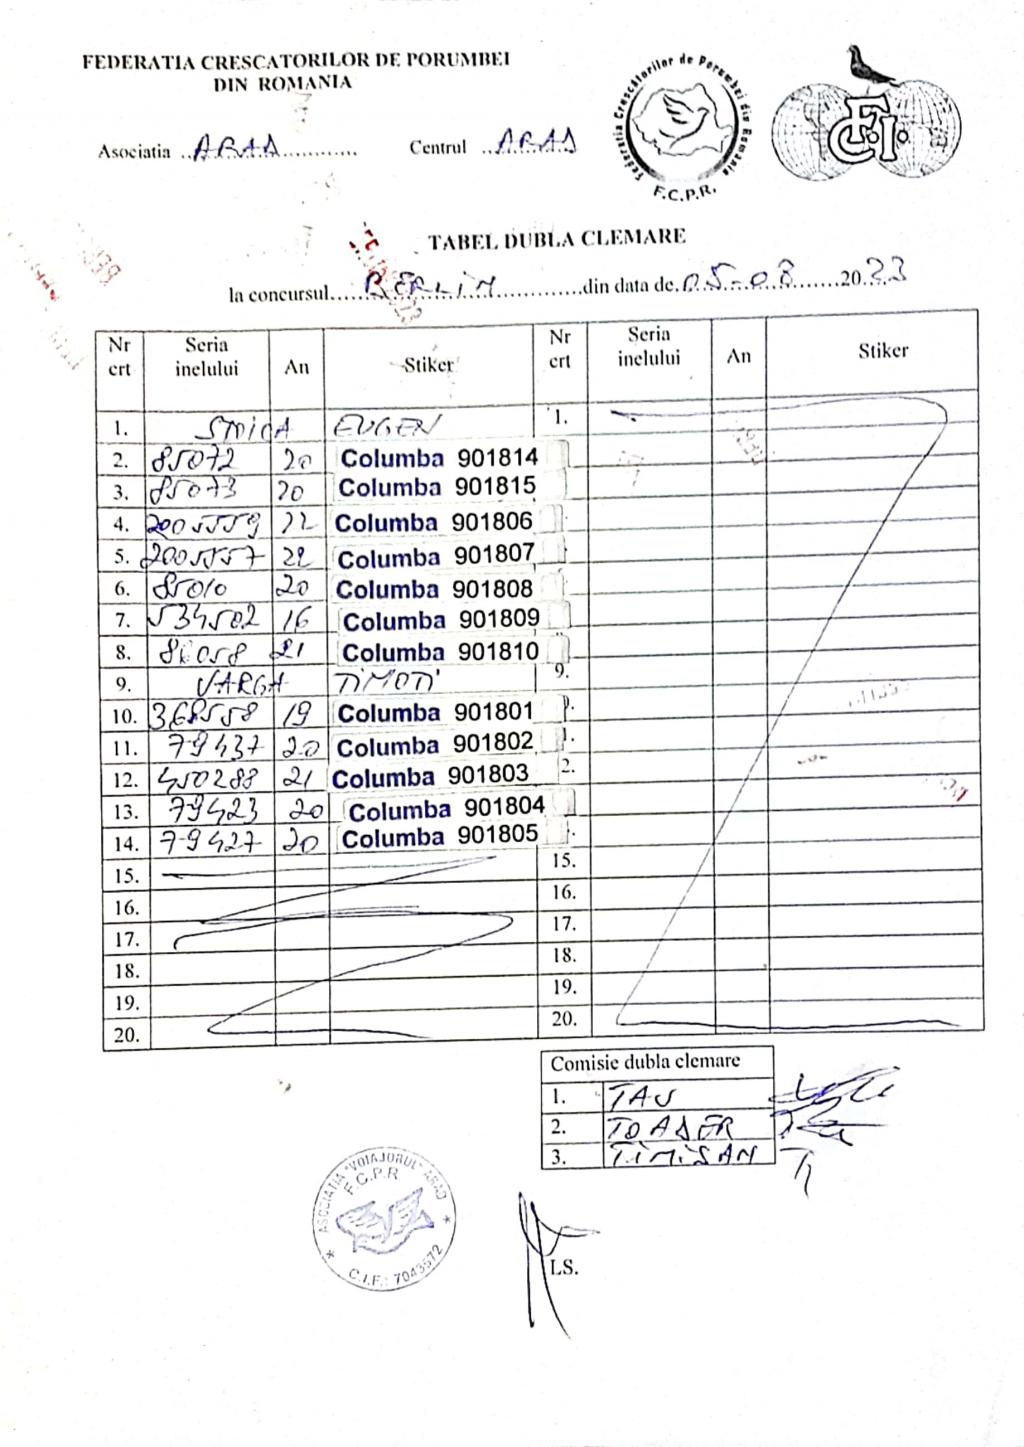 FEDERATIA CRESCATORILOR DE PORUMBEI
DIN ROMANIA
Asociatia ..ARAD............ Centrul ..ARAD
Federatia Crescătorilor de Porumbei din Romania
F.C.P.R.
F.C.I.
TABEL DUBLA CLEMARE
la concursul.....BERLIN..............din data de.05-08.......2023
Nr crt Seria inelului An Stiker Nr crt Seria inelului An Stiker
1. STOICA EUGEN 1.
2. 85072 20 Columba 901814
3. 85073 20 Columba 901815
4. 2005559 22 Columba 901806
5. 2005557 22 Columba 901807
6. 85010 20 Columba 901808
7. 534502 16 Columba 901809
8. 86058 21 Columba 901810
9. VARGA TIMOTI 9.
10. 368558 19 Columba 901801
11. 79437 20 Columba 901802 1.
12. 450288 21 Columba 901803 2.
13. 79423 20 Columba 901804
14. 79427 20 Columba 901805
15. 15.
16. 16.
17. 17.
18. 18.
19. 19.
20. 20.
Comisie dubla clemare
1. TAU
2. TOADER
3. TIMISAN
ASOCIATIA "VOIAJORUL" ARAD
F.C.P.R
C.I.F.: 7043572
LS.